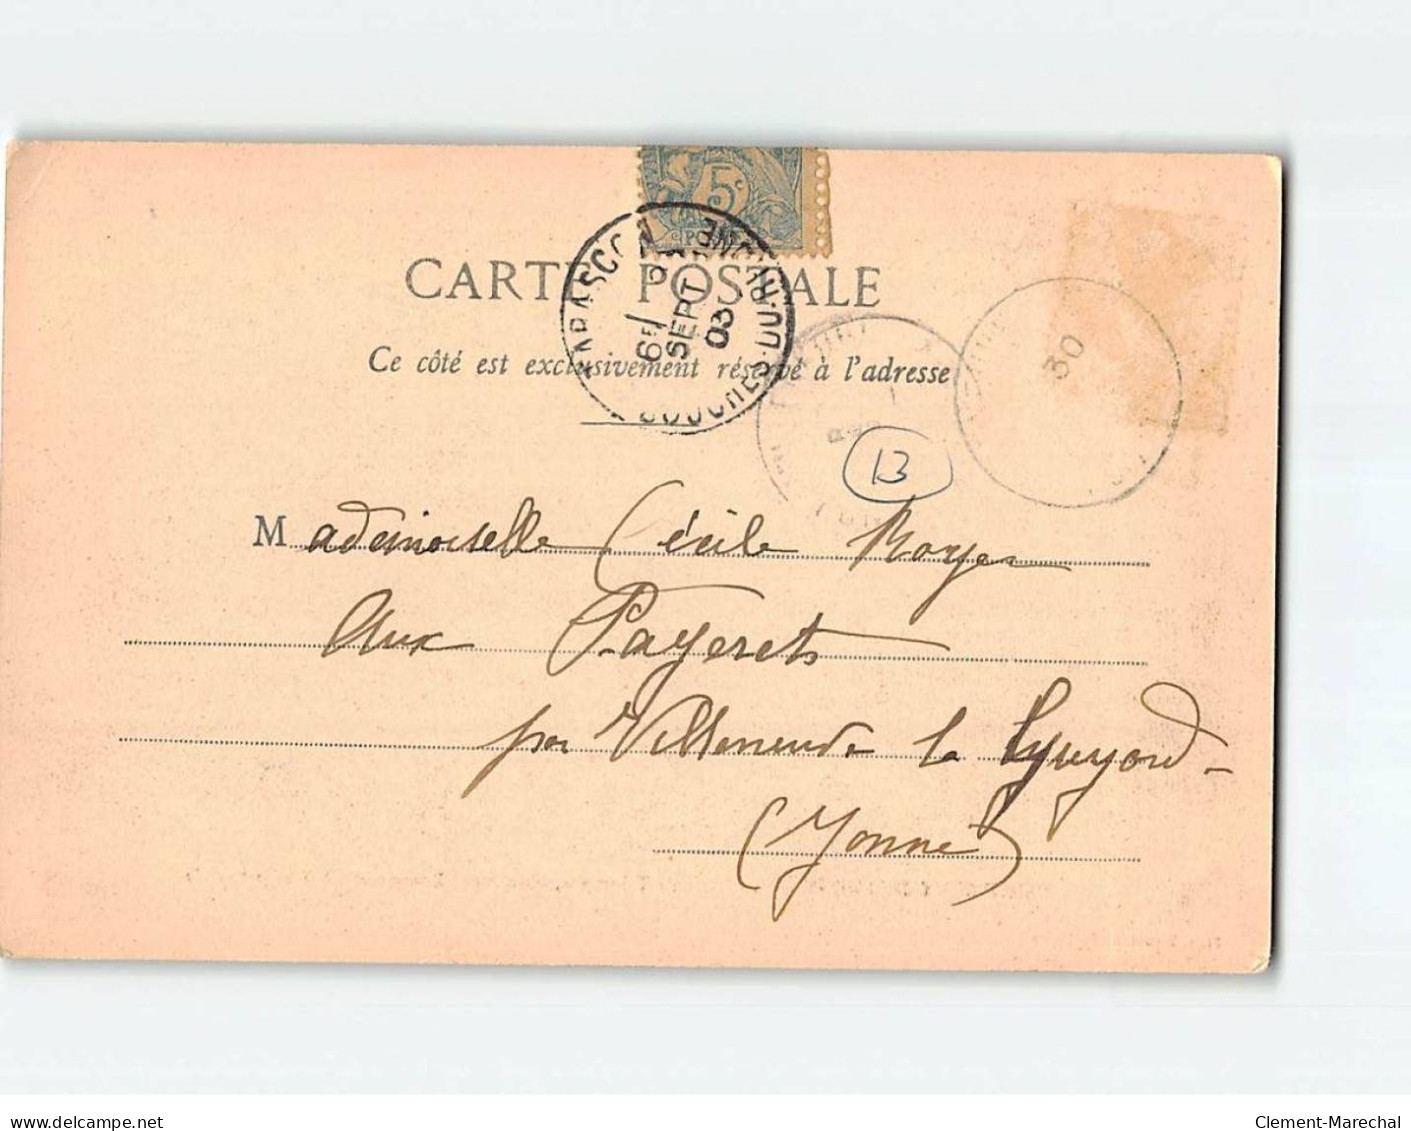 5c
CARTE POSTALE
TARASCON
BOUCHES-DU-RHONE
6E
SEPT
03
Ce côté est exclusivement réservé à l'adresse
30
13
Mademoiselle Cécile Royer
Aux Payerets
par Villeneuve la Guyard -
(Yonne)
delcampe.net
Clement-Marechal